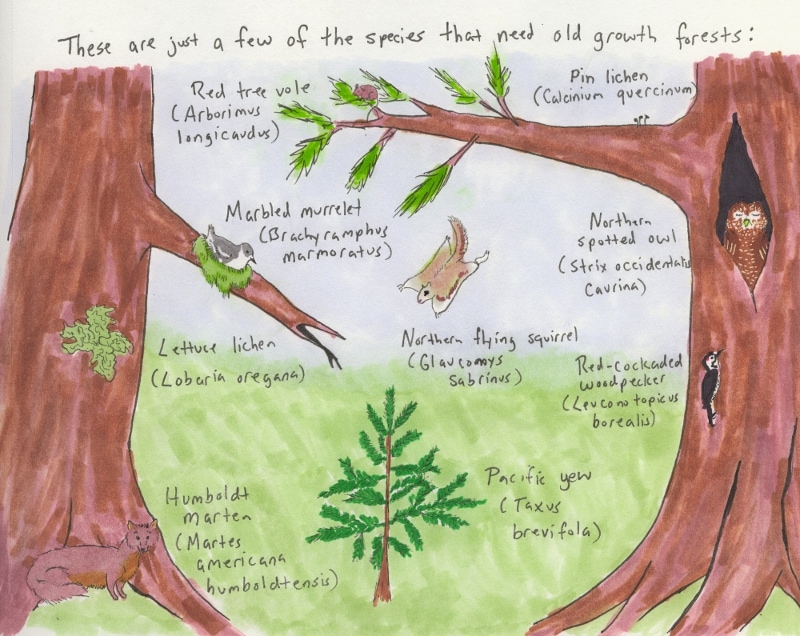 These are just a few of the species that need old growth forests:
Red tree vole
(Arborimus
longicaudus)
Pin lichen
(Calcinium quercinum)
Marbled murrelet
(Brachyramphus
marmoratus)
Northern
spotted owl
(Strix occidentalis
Caurina)
Lettuce lichen
(Lobaria oregana)
Northern flying squirrel
(Glaucomys
Sabrinus)
Red-cockaded
woodpecker
(Leuconotopicus
borealis)
Humboldt
marten
(Martes
americana
humboldtensis)
Pacific yew
(Taxus
brevifola)